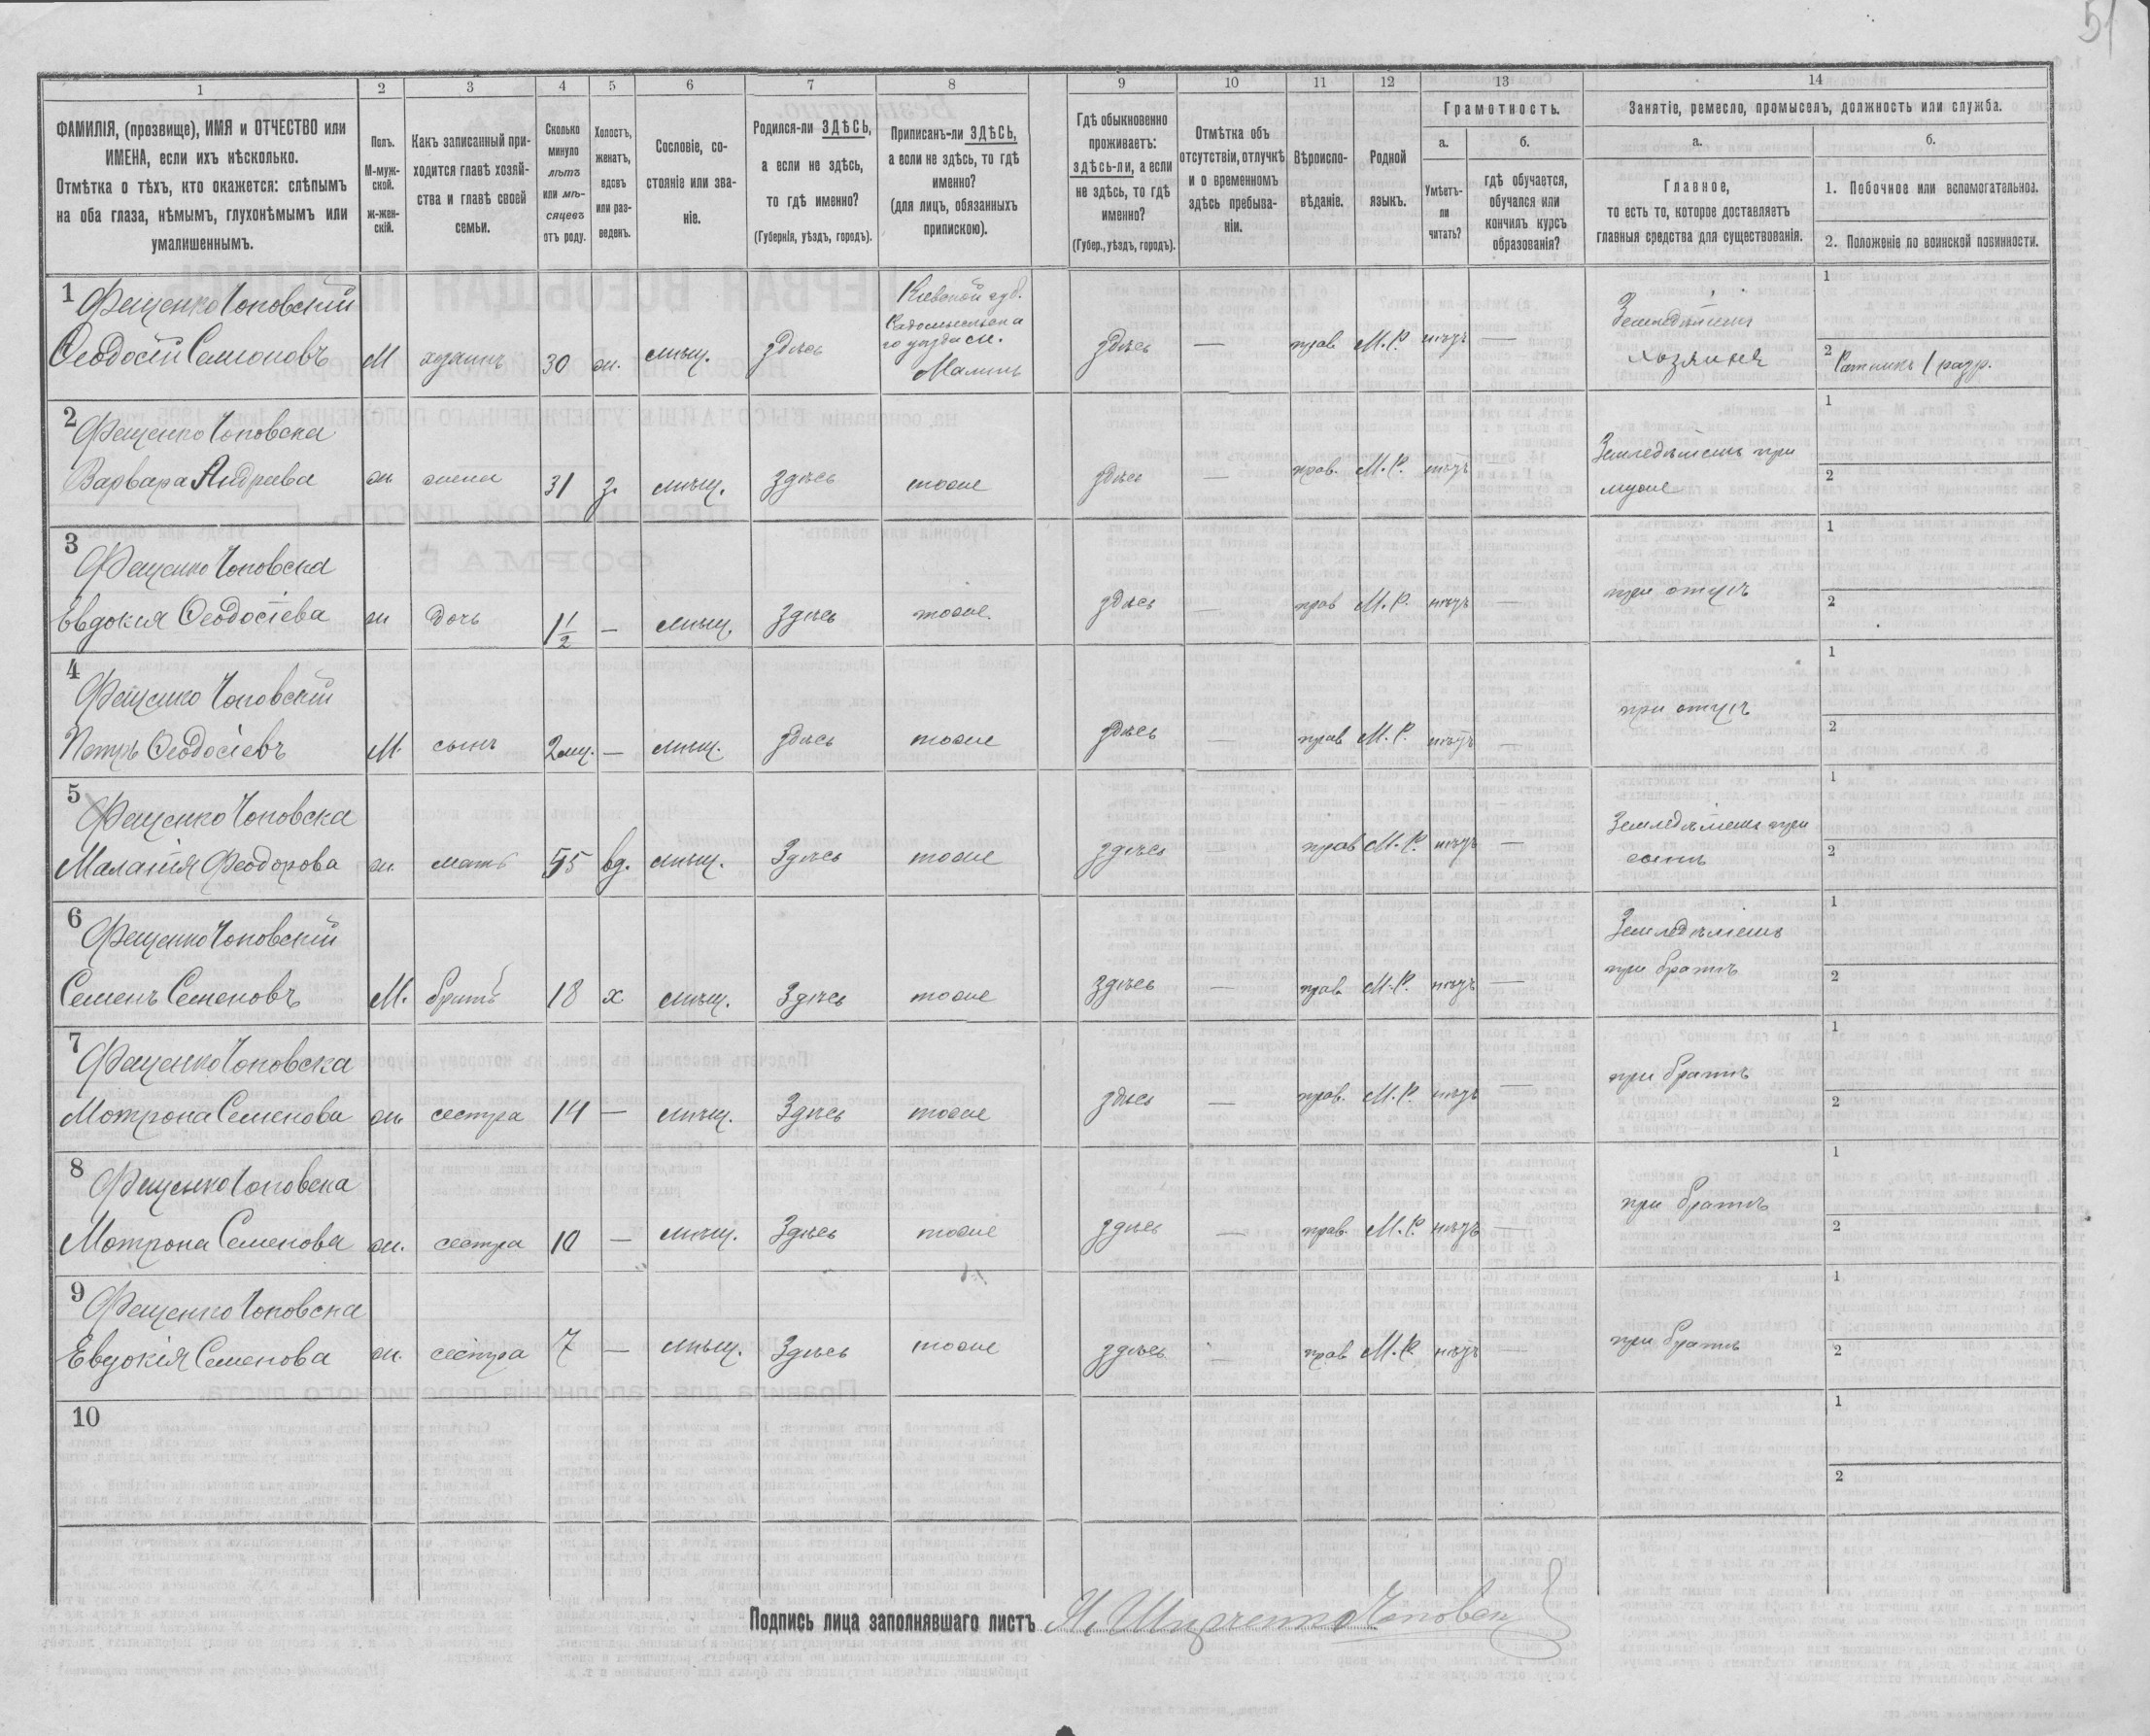 51
1 2 3 4 5 6 7 8 9 10 11 12 13 14
ФАМИЛІЯ, (прозвище), ИМЯ и ОТЧЕСТВО или
ИМЕНА, если ихъ нѣсколько.
Отмѣтка о тѣхъ, кто окажется: слѣпымъ
на оба глаза, нѣмымъ, глухонѣмымъ или
умалишеннымъ.
Полъ.
М-муж-
ской.
ж-жен-
скій.
Какъ записанный при-
ходится главѣ хозяй-
ства и главѣ своей
семьи.
Сколько
минуло
лѣтъ
или мѣ-
сяцевъ
отъ роду.
Холостъ,
женатъ,
вдовъ
или раз-
веденъ.
Сословіе, со-
стояніе или зва-
ніе.
Родился-ли ЗДѢСЬ,
а если не здѣсь,
то гдѣ именно?
(Губернія, уѣздъ, городъ).
Приписанъ-ли ЗДѢСЬ,
а если не здѣсь, то гдѣ
именно?
(для лицъ, обязанныхъ
припискою).
Гдѣ обыкновенно
проживаетъ:
здѣсь-ли, а если
не здѣсь, то гдѣ
именно?
(Губер., уѣздъ, городъ).
Отмѣтка объ
отсутствіи, отлучкѣ
и о временномъ
здѣсь пребыва-
ніи.
Вѣроиспо-
вѣданіе.
Родной
языкъ.
Грамотность.
а. б.
Умѣетъ-
ли
читать?
гдѣ обучается,
обучался или
кончилъ курсъ
образованія?
Занятіе, ремесло, промыселъ, должность или служба.
а. б.
Главное,
то есть то, которое доставляетъ
главныя средства для существованія.
1. Побочное или вспомогательное.
2. Положеніе по воинской повинности.
1 Фещенко Чоповскій
Ѳеодосій Семоновъ М хозяинъ 30 ж. мѣщ. здѣсь
Кіевской губ.
Радомысльска
го уѣзда м.
Малинъ
здѣсь — прав. М.Р. нѣтъ —
Земледѣлецъ
хозяинъ
1
2 Ратникъ 1 разр.
2 Фещенко Чоповска
Варвара Андреева ж. жена 31 з. мѣщ. здѣсь тоже здѣсь — прав. М.Р. нѣтъ —
Земледѣлецъ при
мужѣ
1
2
3 Фещенко Чоповска
Евдокія Ѳеодосіева ж дочь 1 1/2 — мѣщ. здѣсь тоже здѣсь — прав М.Р. нѣтъ —
при отцѣ
1
2
4 Фещенко Чоповскій
Петръ Ѳеодосіевъ М. сынъ 2 мц. — мѣщ. здѣсь тоже здѣсь — прав М.Р. нѣтъ —
при отцѣ
1
2
5 Фещенко Чоповска
Маланія Феодорова ж. мать 55 вд. мѣщ. Здѣсь тоже здѣсь — прав М.Р. нѣтъ —
Земледѣлецъ при
сынѣ
1
2
6 Фещенко Чоповскій
Семенъ Семеновъ М. братъ 18 х мѣщ. Здѣсь тоже здѣсь — прав. М.Р. нѣтъ —
Земледѣлецъ
при братѣ
1
2
7 Фещенко Чоповска
Мотрона Семенова ж. сестра 14 — мѣщ. Здѣсь тоже здѣсь — прав. М.Р. нѣтъ —
при братѣ
1
2
8 Фещенко Чоповска
Мотрона Семенова ж. сестра 10 — мѣщ. Здѣсь тоже здѣсь — прав. М.Р. нѣтъ —
при братѣ
1
2
9 Фещенко Чоповска
Евдокія Семенова ж. сестра 7 — мѣщ. Здѣсь тоже здѣсь — прав М.Р. нѣтъ —
при братѣ
1
2
10
1
2
Подпись лица заполнявшаго листъ